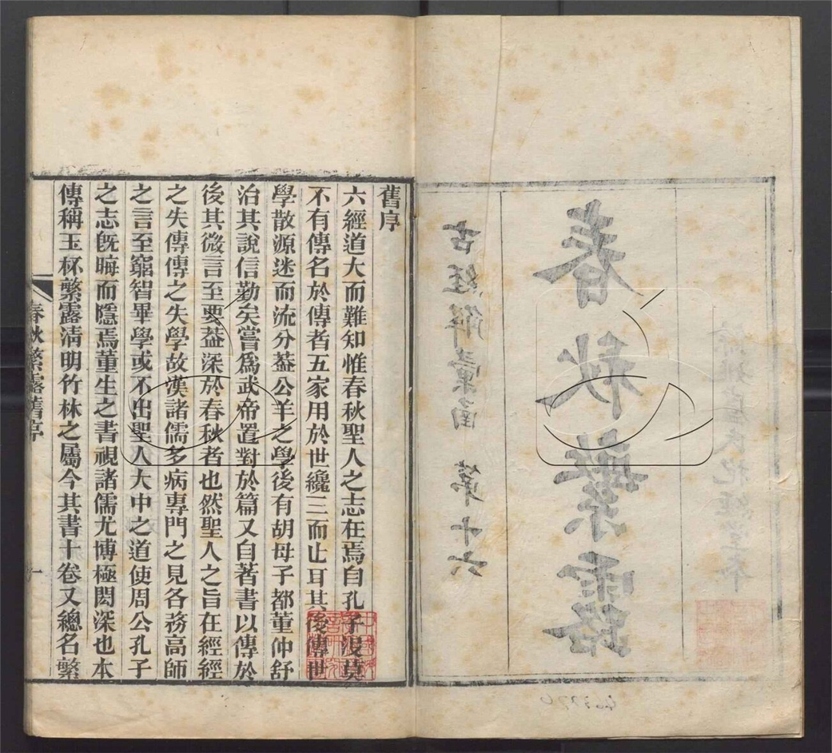 古經解彙函 第十六
春秋繁露
舊序
六經道大而難知惟春秋聖人之志在焉自孔子沒莫
不有傳名於傳者五家用於世纔三而止耳其後傳世
學散源迷而流分葢公羊之學後有胡母子都董仲舒
治其說信勤矣嘗爲武帝置對於篇又自著書以傳於
後其微言至要葢深於春秋者也然聖人之旨在經經
之失傳傳之失學故漢諸儒多病專門之見各務高師
之言至窮智畢學或不出聖人大中之道使周公孔子
之志旣晦而隱焉董生之書視諸儒尤博極閎深也本
傳稱玉杯繁露淸明竹林之屬今其書十卷又總名繁
春秋繁露舊序
一